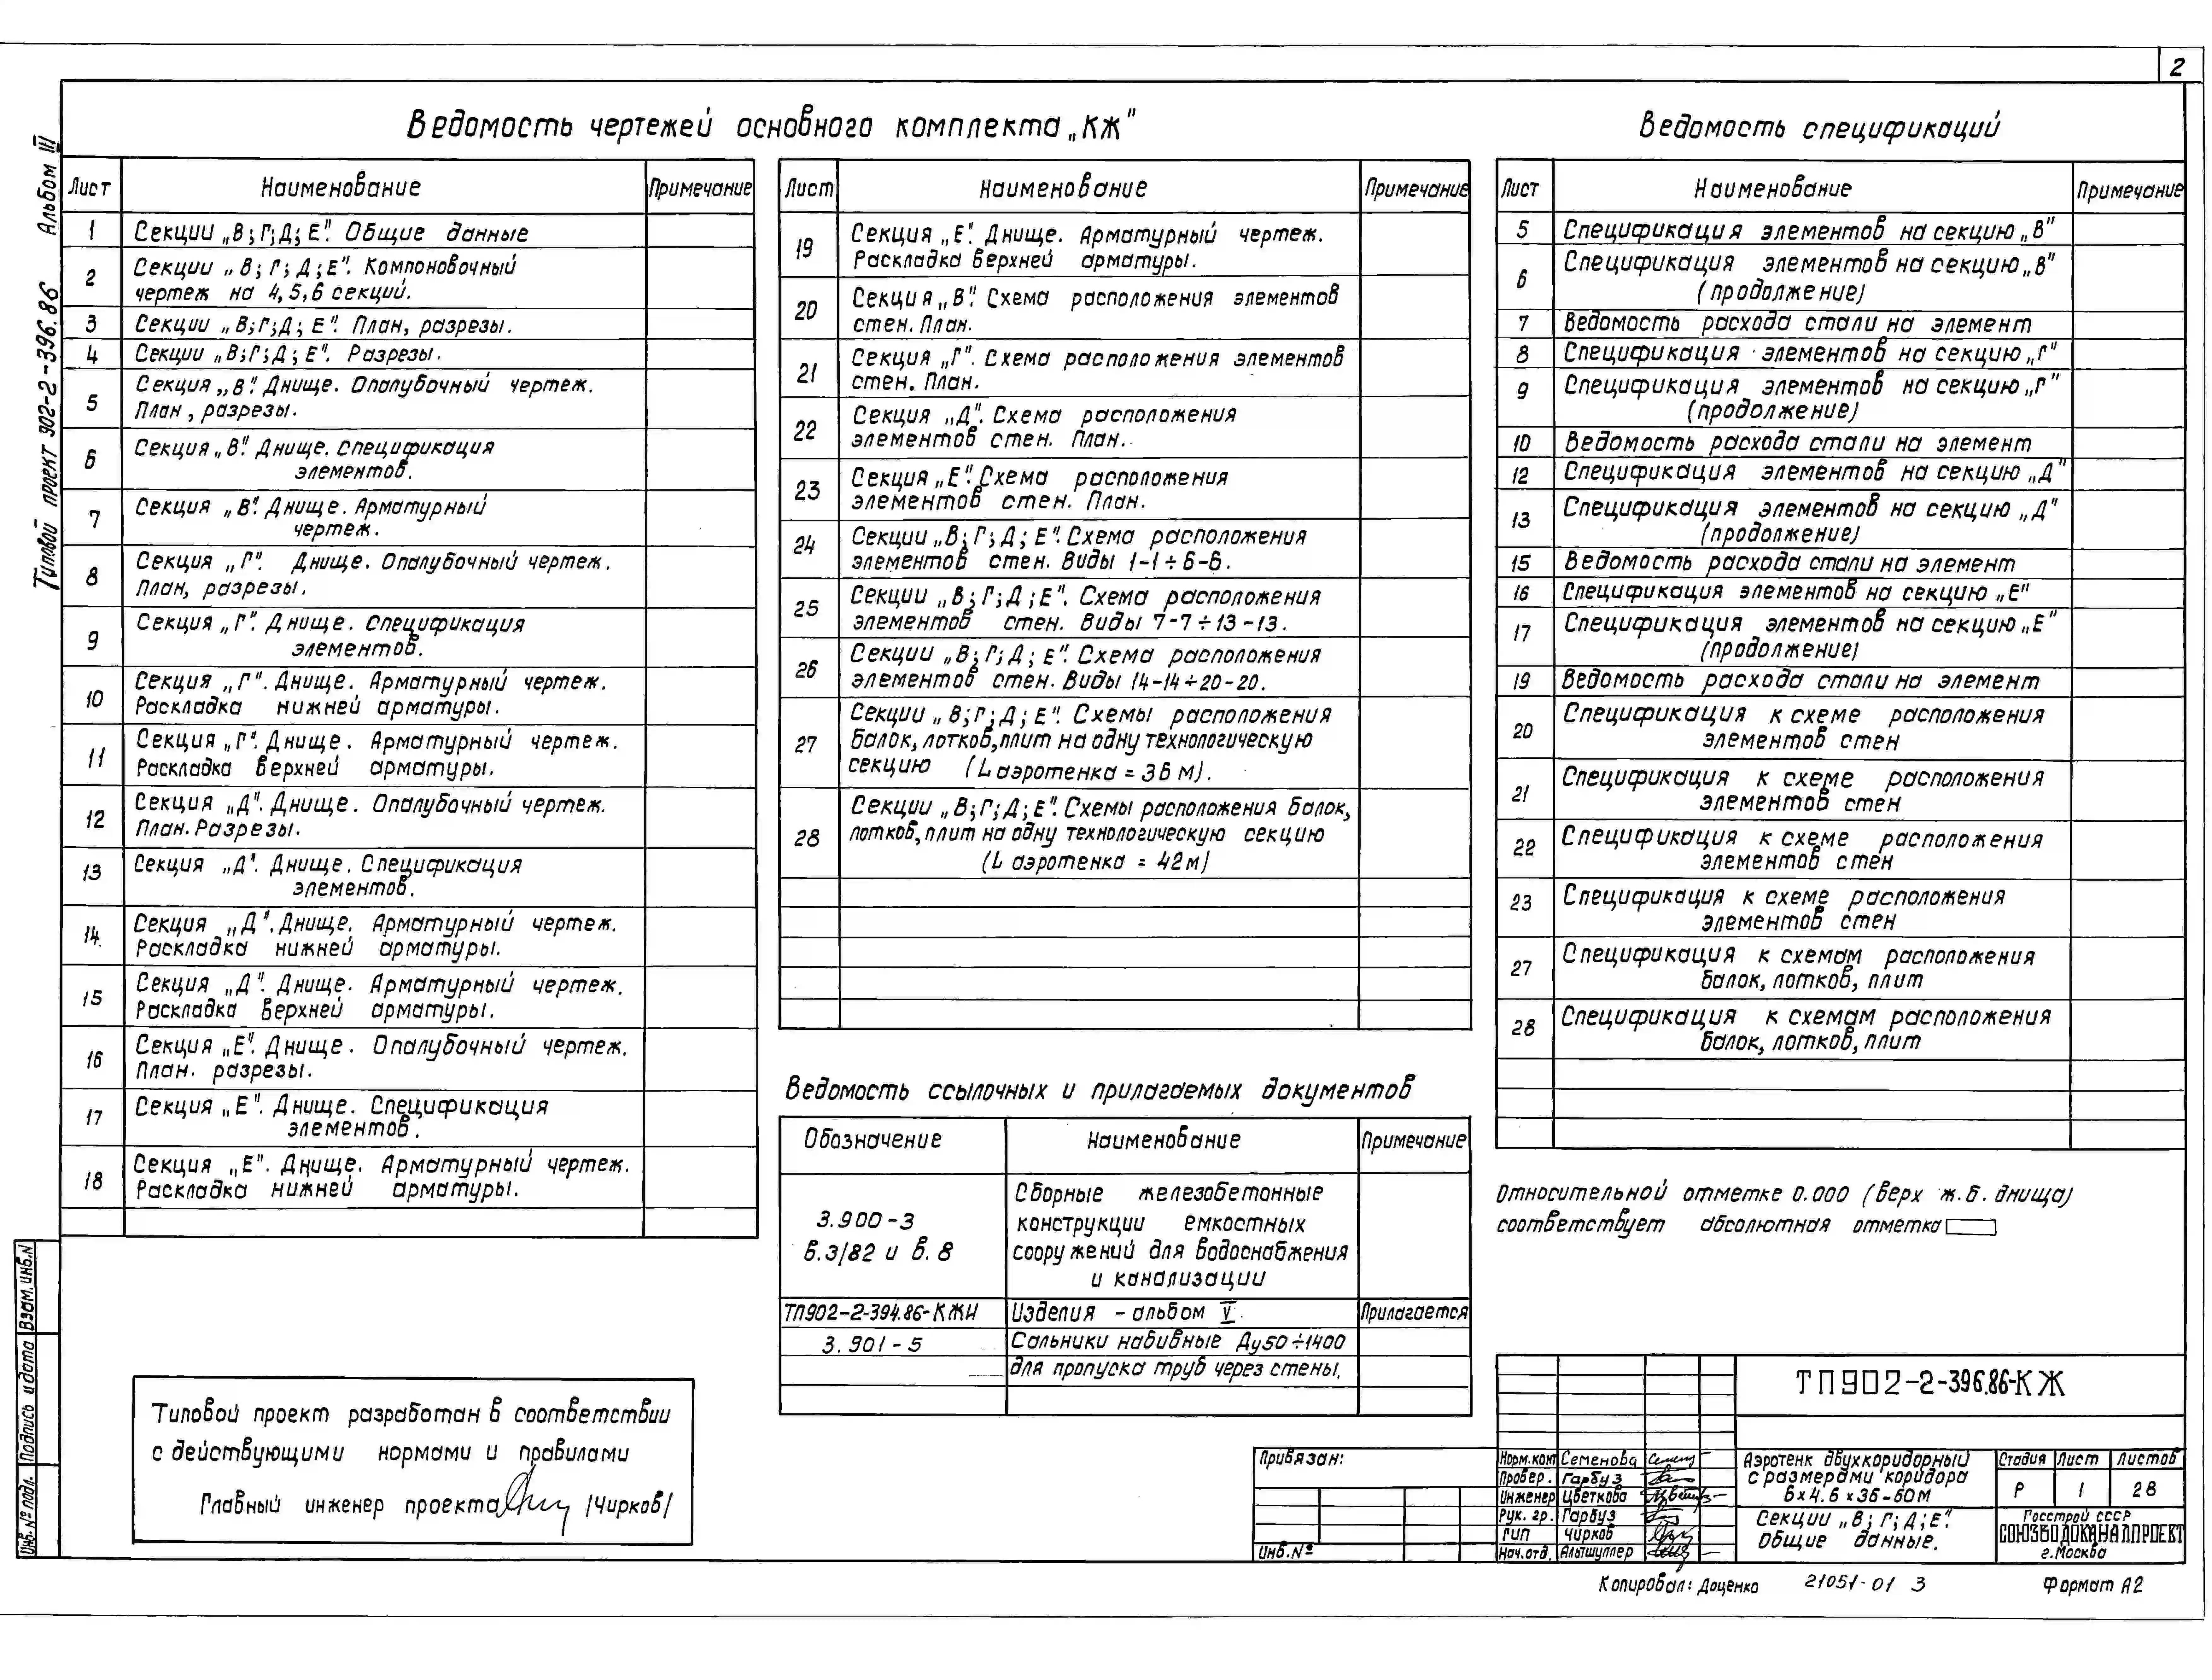 2
Альбом III
Типовой проект 902-2-396.86
Ведомость чертежей основного комплекта „КЖ"
Лист Наименование Примечание
1 Секции „В; Г; Д; Е". Общие данные
2 Секции „В; Г; Д; Е". Компоновочный
чертеж на 4, 5, 6 секций.
3 Секции „В; Г; Д; Е". План, разрезы.
4 Секции „В; Г; Д; Е". Разрезы.
5 Секция „В". Днище. Опалубочный чертеж.
План, разрезы.
6 Секция „В". Днище. Спецификация
элементов.
7 Секция „В". Днище. Арматурный
чертеж.
8 Секция „Г". Днище. Опалубочный чертеж.
План, разрезы.
9 Секция „Г". Днище. Спецификация
элементов.
10 Секция „Г". Днище. Арматурный чертеж.
Раскладка нижней арматуры.
11 Секция „Г". Днище. Арматурный чертеж.
Раскладка верхней арматуры.
12 Секция „Д". Днище. Опалубочный чертеж.
План. Разрезы.
13 Секция „Д". Днище. Спецификация
элементов.
14 Секция „Д". Днище. Арматурный чертеж.
Раскладка нижней арматуры.
15 Секция „Д". Днище. Арматурный чертеж.
Раскладка верхней арматуры.
16 Секция „Е". Днище. Опалубочный чертеж.
План. разрезы.
17 Секция „Е". Днище. Спецификация
элементов.
18 Секция „Е". Днище. Арматурный чертеж.
Раскладка нижней арматуры.
Лист Наименование Примечание
19 Секция „Е". Днище. Арматурный чертеж.
Раскладка верхней арматуры.
20 Секция „В". Схема расположения элементов
стен. План.
21 Секция „Г". Схема расположения элементов
стен. План.
22 Секция „Д". Схема расположения
элементов стен. План.
23 Секция „Е". Схема расположения
элементов стен. План.
24 Секции „В; Г; Д; Е". Схема расположения
элементов стен. Виды 1-1÷6-6.
25 Секции „В; Г; Д; Е". Схема расположения
элементов стен. Виды 7-7÷13-13.
26 Секции „В; Г; Д; Е". Схема расположения
элементов стен. Виды 14-14÷20-20.
27 Секции „В; Г; Д; Е". Схемы расположения
балок, лотков, плит на одну технологическую
секцию (L аэротенка = 36 м).
28 Секции „В; Г; Д; Е". Схемы расположения балок,
лотков, плит на одну технологическую секцию
(L аэротенка = 42м)
Ведомость спецификаций
Лист Наименование Примечание
5 Спецификация элементов на секцию „В"
6 Спецификация элементов на секцию „В"
(продолжение)
7 Ведомость расхода стали на элемент
8 Спецификация элементов на секцию „Г"
9 Спецификация элементов на секцию „Г"
(продолжение)
10 Ведомость расхода стали на элемент
12 Спецификация элементов на секцию „Д"
13 Спецификация элементов на секцию „Д"
(продолжение)
15 Ведомость расхода стали на элемент
16 Спецификация элементов на секцию „Е"
17 Спецификация элементов на секцию „Е"
(продолжение)
19 Ведомость расхода стали на элемент
20 Спецификация к схеме расположения
элементов стен
21 Спецификация к схеме расположения
элементов стен
22 Спецификация к схеме расположения
элементов стен
23 Спецификация к схеме расположения
элементов стен
27 Спецификация к схемам расположения
балок, лотков, плит
28 Спецификация к схемам расположения
балок, лотков, плит
Ведомость ссылочных и прилагаемых документов
Обозначение Наименование Примечание
3.900-3 Сборные железобетонные
в.3/82 и в. 8 конструкции емкостных
сооружений для водоснабжения
и канализации
ТП902-2-394.86-КЖИ Изделия - альбом V. Прилагается
3.901-5 Сальники набивные Ду50÷1400
для пропуска труб через стены.
Относительной отметке 0.000 (верх ж.б. днища)
соответствует абсолютная отметка
Типовой проект разработан в соответствии
с действующими нормами и правилами
Главный инженер проекта /Чирков/
Взам. инв.N
Подпись и дата
Инв.№ подл.
Привязан:
Инв.№
ТП902-2-396.86-КЖ
Норм.конт Семенова
Провер. Гарбуз
Инженер Цветкова
Рук. гр. Гарбуз
ГИП Чирков
Нач.отд. Альтшуллер
Аэротенк двухкоридорный
с размерами коридора
6х4.6х36-60м
Секции „В; Г; Д; Е".
Общие данные.
Стадия Лист Листов
Р 1 28
Госстрой СССР
СОЮЗВОДОКАНАЛПРОЕКТ
г.Москва
Копировал: Доценко 21051-01 3 Формат А2